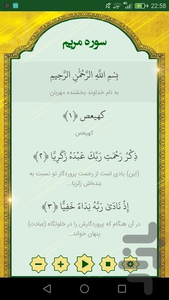 22:58
سوره مریم
بِسْمِ اللَّهِ الرَّحْمَٰنِ الرَّحِيمِ
به نام خداوند بخشنده مهربان
كهيعص ﴿۱﴾
کهیعص
ذِكْرُ رَحْمَتِ رَبِّكَ عَبْدَهُ زَكَرِيَّا ﴿۲﴾
(این) یادی است از رحمت پروردگار تو نسبت به
بنده‌اش زکریا...
إِذْ نَادَىٰ رَبَّهُ نِدَاءً خَفِيًّا ﴿۳﴾
در آن هنگام که پروردگارش را در خلوتگاه (عبادت)
پنهان خواند...